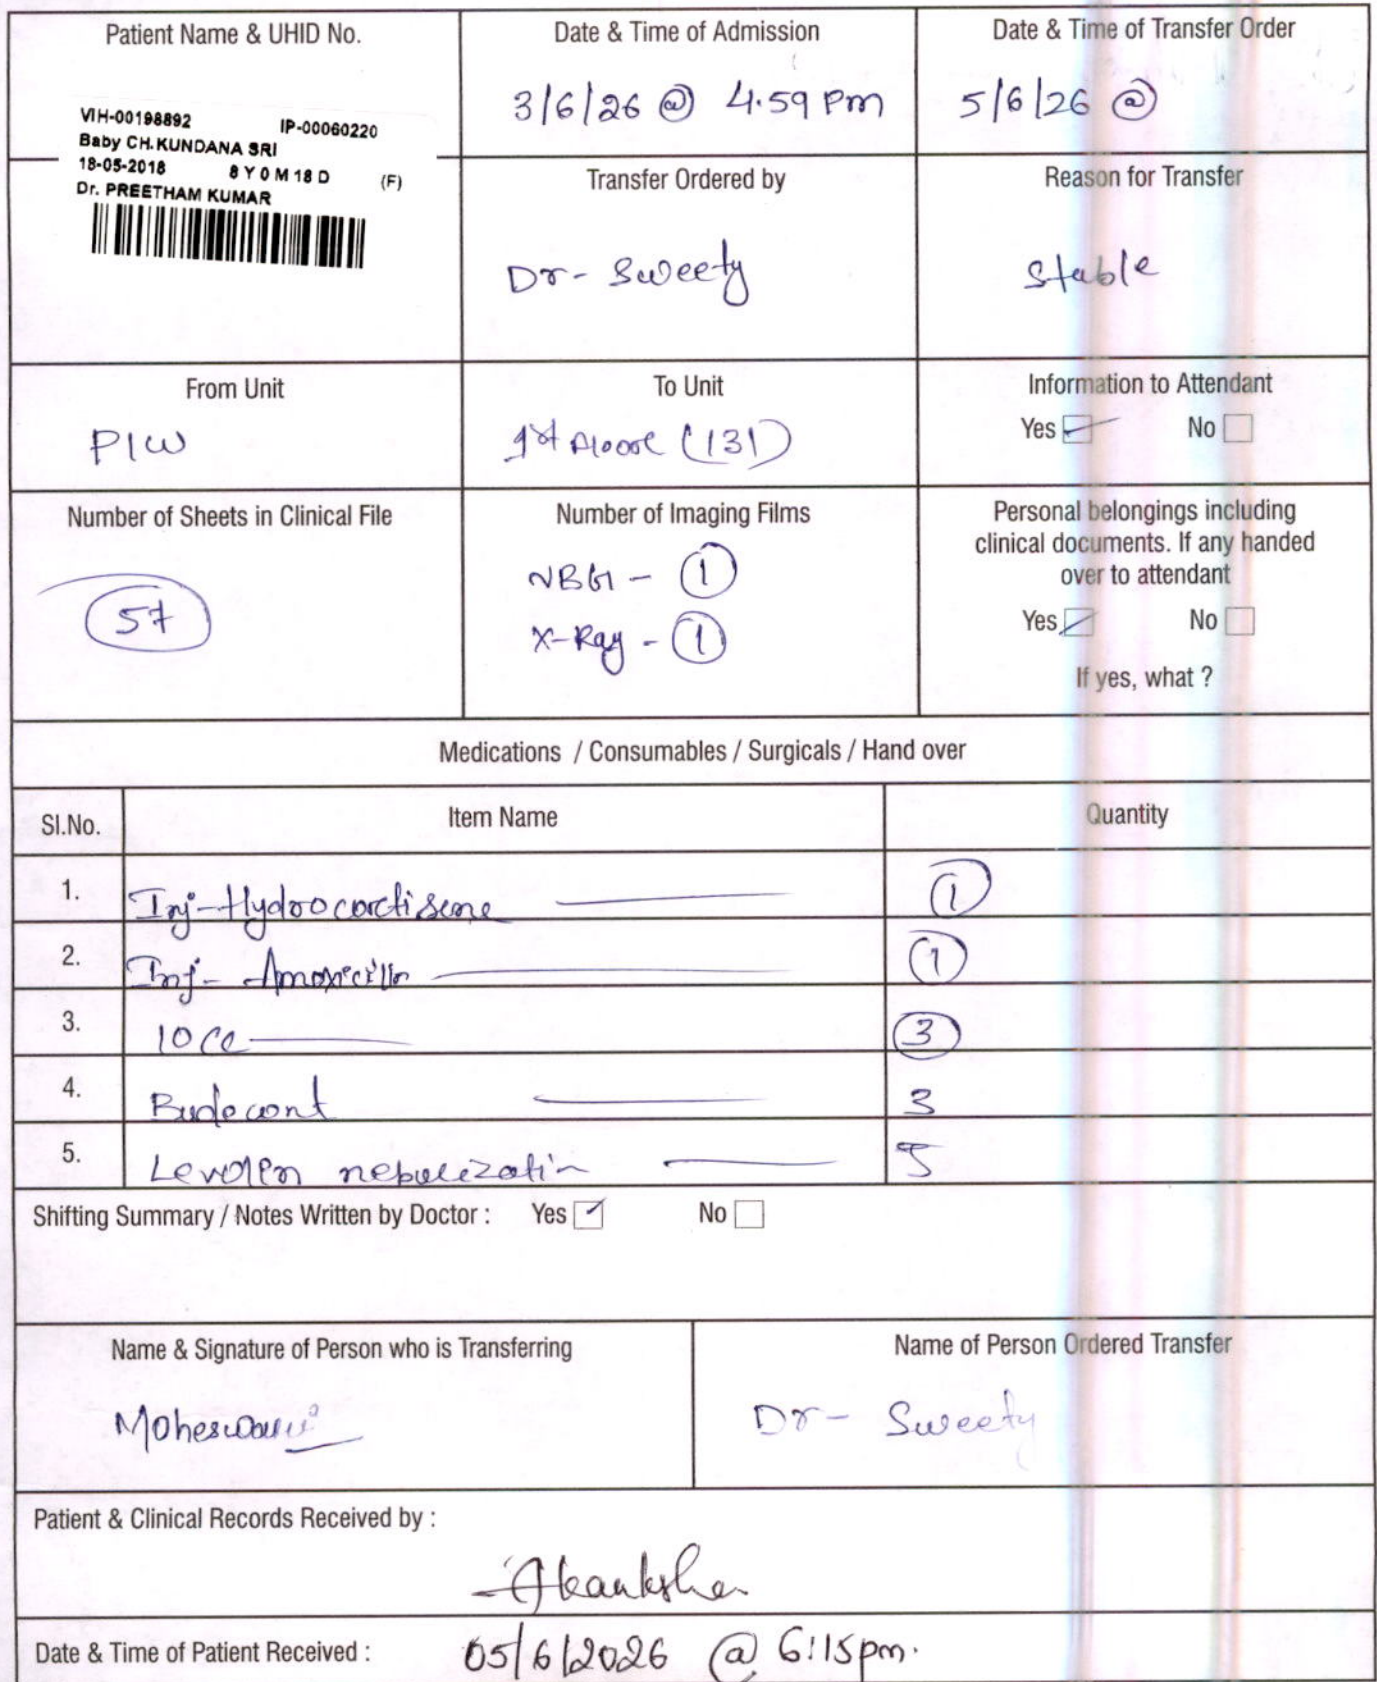 Patient Name & UHID No.
VIH-00198892 IP-00060220
Baby CH.KUNDANA SRI
18-05-2018 8 Y 0 M 18 D (F)
Dr. PREETHAM KUMAR
Date & Time of Admission
3/6/26 @ 4.59 pm
Date & Time of Transfer Order
5/6/26 @
Transfer Ordered by
Dr- Sweety
Reason for Transfer
Stable
From Unit
PIW
To Unit
1st (131)
Information to Attendant
Yes No
Number of Sheets in Clinical File
57
Number of Imaging Films
- 1
X-Ray - 1
Personal belongings including
clinical documents. If any handed
over to attendant
Yes No
If yes, what ?
Medications / Consumables / Surgicals / Hand over
Sl.No. Item Name Quantity
1. Inj-Hydrocortisone 1
2. Inj- Amoxicillin 1
3. 10cc 3
4. Budecont 3
5. 5
Shifting Summary / Notes Written by Doctor : Yes No
Name & Signature of Person who is Transferring
Moheswari
Name of Person Ordered Transfer
Dr- Sweety
Patient & Clinical Records Received by :
Akanksha
Date & Time of Patient Received : 05/6/2026 @ 6:15pm.